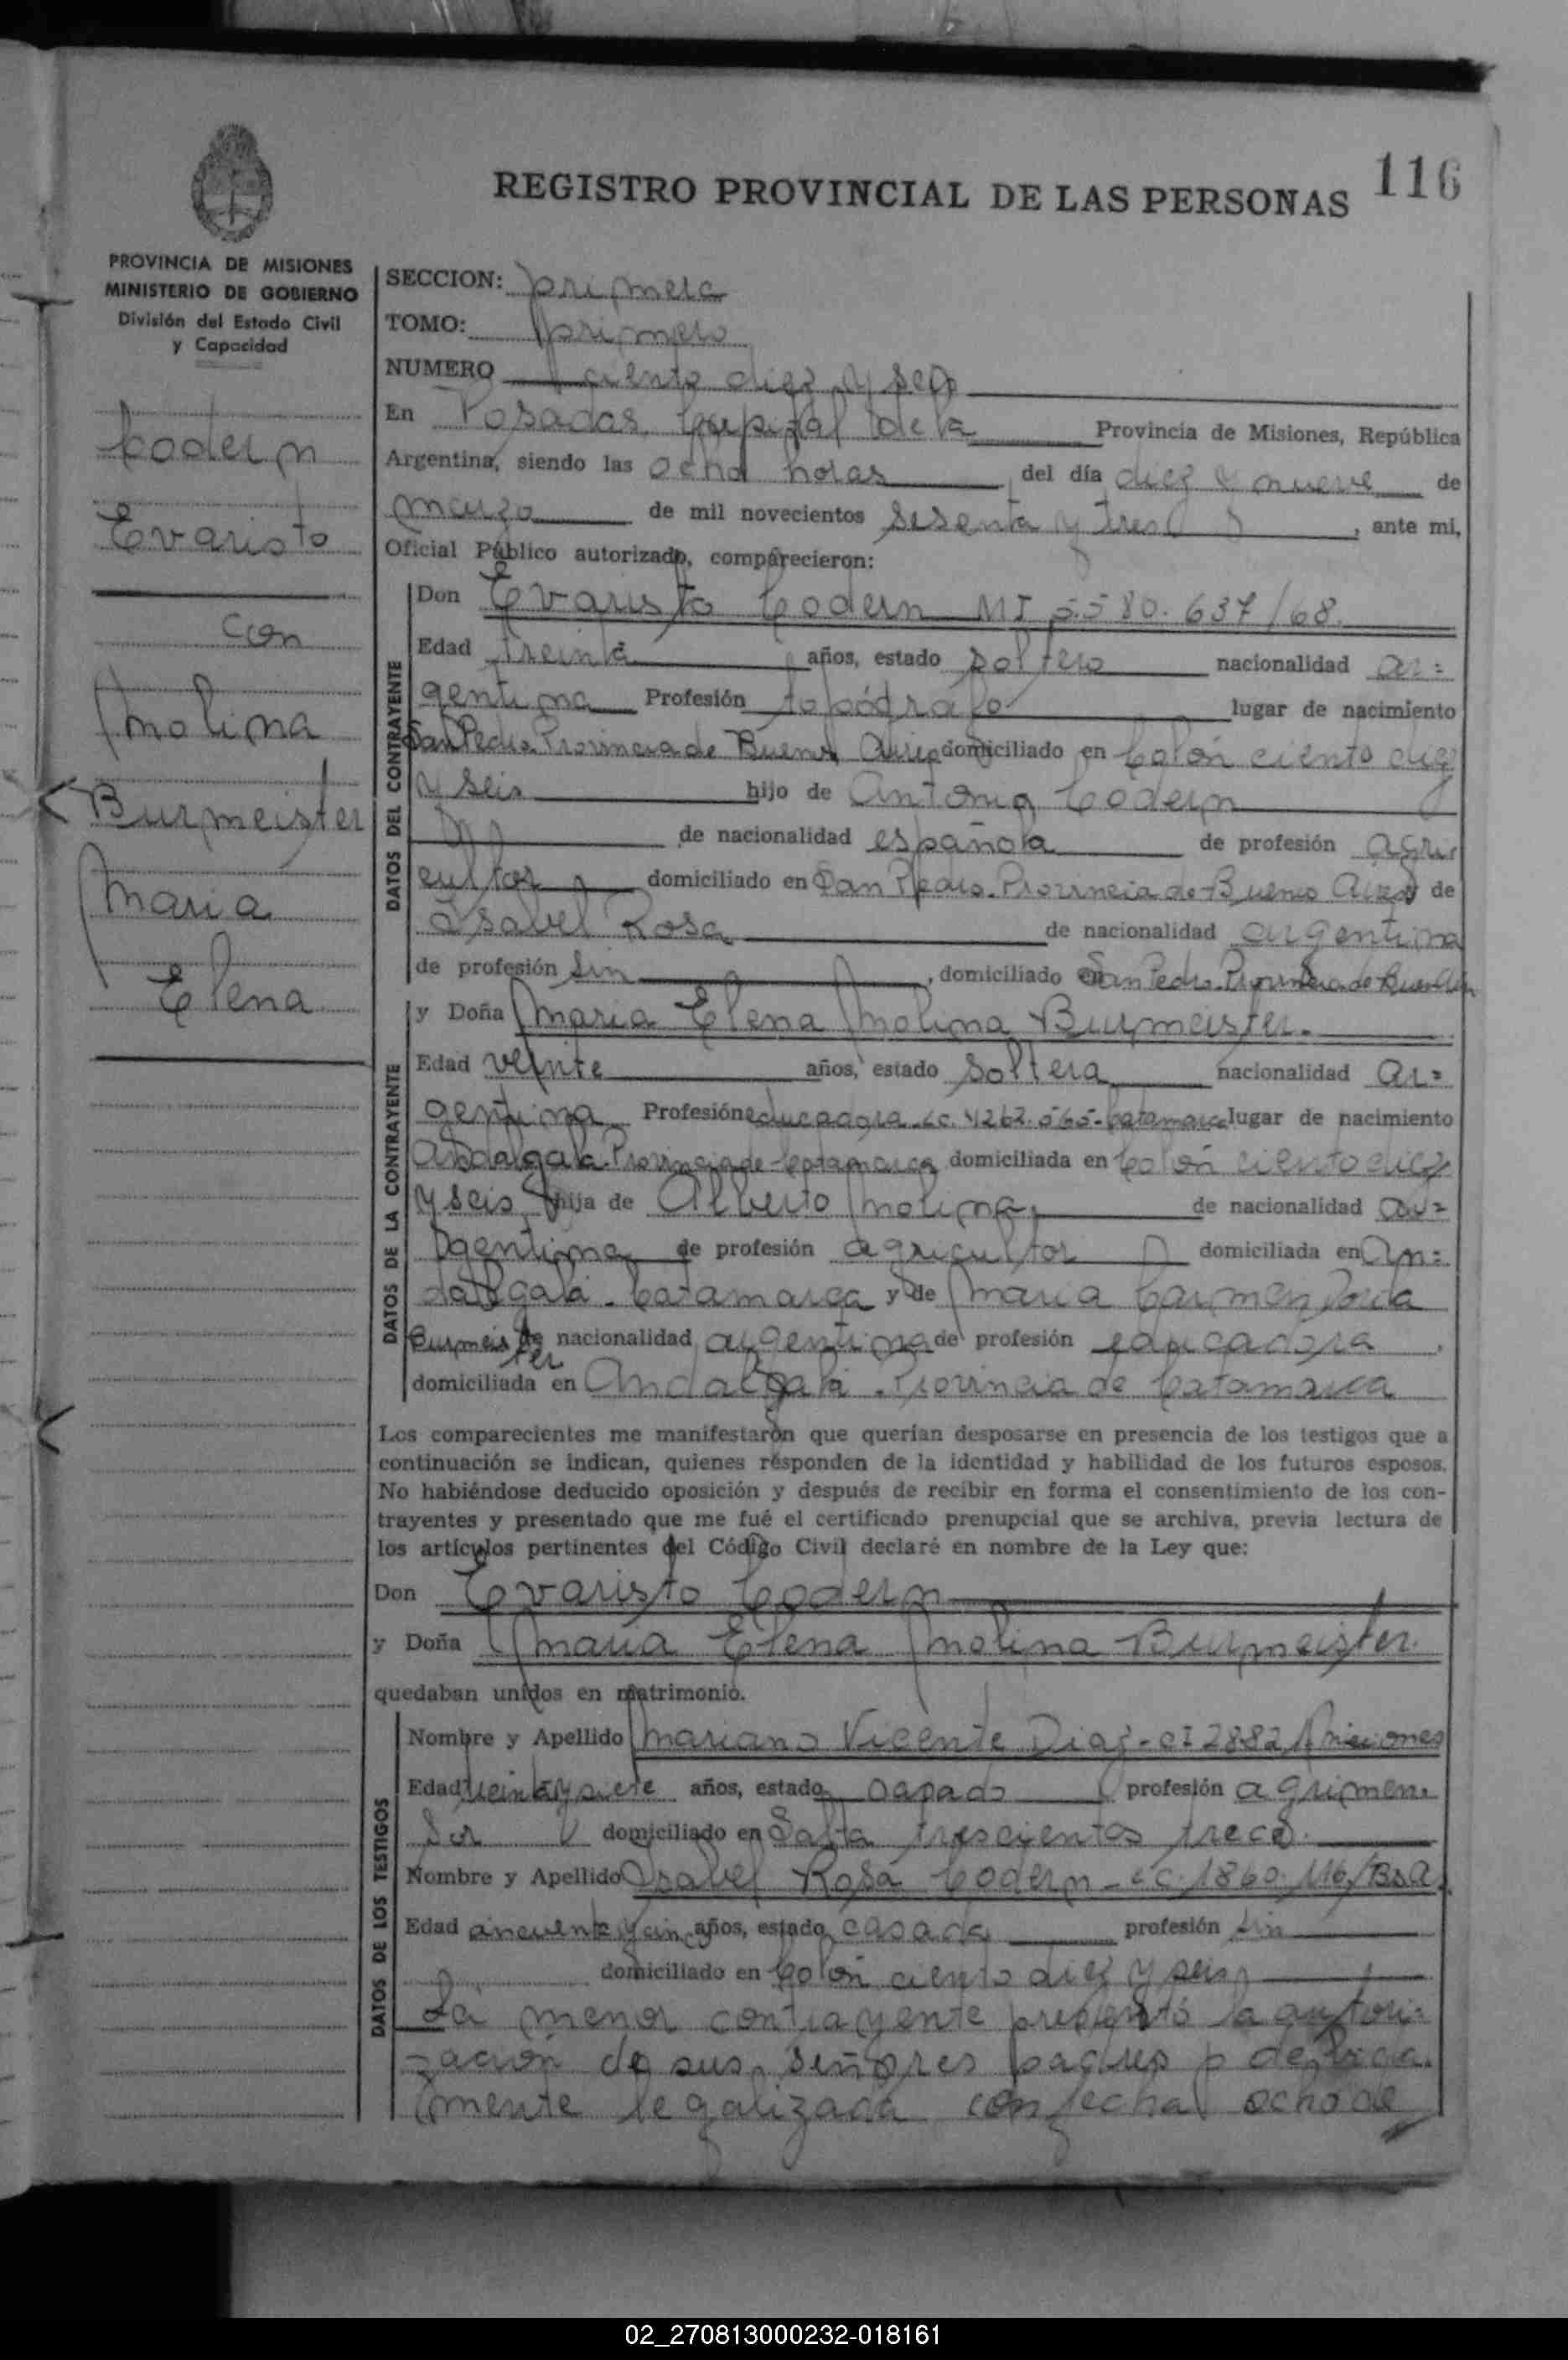 REGISTRO PROVINCIAL DE LAS PERSONAS 116
PROVINCIA DE MISIONES
MINISTERIO DE GOBIERNO
División del Estado Civil
y Capacidad
Codern
Evaristo
con
Molina
Burmeister
Maria
Elena
SECCION: primera
TOMO: primero
NUMERO ciento diez y seis
En Posadas, Capital de la Provincia de Misiones, República
Argentina, siendo las ocho horas del día diez y nueve de
marzo de mil novecientos sesenta y tres, ante mi,
Oficial Público autorizado, comparecieron:
DATOS DEL CONTRAYENTE
Don Evaristo Codern MI 5.580.637/68.
Edad treinta años, estado soltero nacionalidad ar=
gentina Profesión topógrafo lugar de nacimiento
San Pedro Provincia de Buenos Aires domiciliado en Colón ciento diez
y seis hijo de Antonio Codern
de nacionalidad española de profesión agri
cultor domiciliado en San Pedro. Provincia de Buenos Aires y de
Isabel Rosa de nacionalidad argentina
de profesión sin, domiciliado en San Pedro. Provincia de
DATOS DE LA CONTRAYENTE
y Doña Maria Elena Molina Burmeister.
Edad veinte años, estado soltera nacionalidad ar=
gentina Profesión educadora. LC. 4262.565-Catamarca lugar de nacimiento
Andalgala. Provincia de Catamarca domiciliada en Colón ciento diez
y seis hija de Alberto Molina de nacionalidad ar=
gentina de profesión agricultor domiciliada en An=
dalgala. Catamarca y de Maria Carmen
Burmeister de nacionalidad argentina de profesión educadora,
domiciliada en Andalgala. Provincia de Catamarca
Los comparecientes me manifestaron que querían desposarse en presencia de los testigos que a
continuación se indican, quienes responden de la identidad y habilidad de los futuros esposos.
No habiéndose deducido oposición y después de recibir en forma el consentimiento de los con-
trayentes y presentado que me fué el certificado prenupcial que se archiva, previa lectura de
los artículos pertinentes del Código Civil declaré en nombre de la Ley que:
Don Evaristo Codern
y Doña Maria Elena Molina Burmeister.
quedaban unidos en matrimonio.
DATOS DE LOS TESTIGOS
Nombre y Apellido Mariano Vicente Diaz - CI 2882 Misiones
Edad treinta y siete años, estado casado profesión agrimen
sor domiciliado en Salta trescientos trece.
Nombre y Apellido Isabel Rosa Codern - LC. 1860.116/Bs.A.
Edad cincuenta y cinco años, estado casada profesión sin
domiciliado en Colón ciento diez y seis
La menor contrayente presentó la autori=
zación de sus señores padres debida
mente legalizada con fecha ocho de
02_270813000232-018161